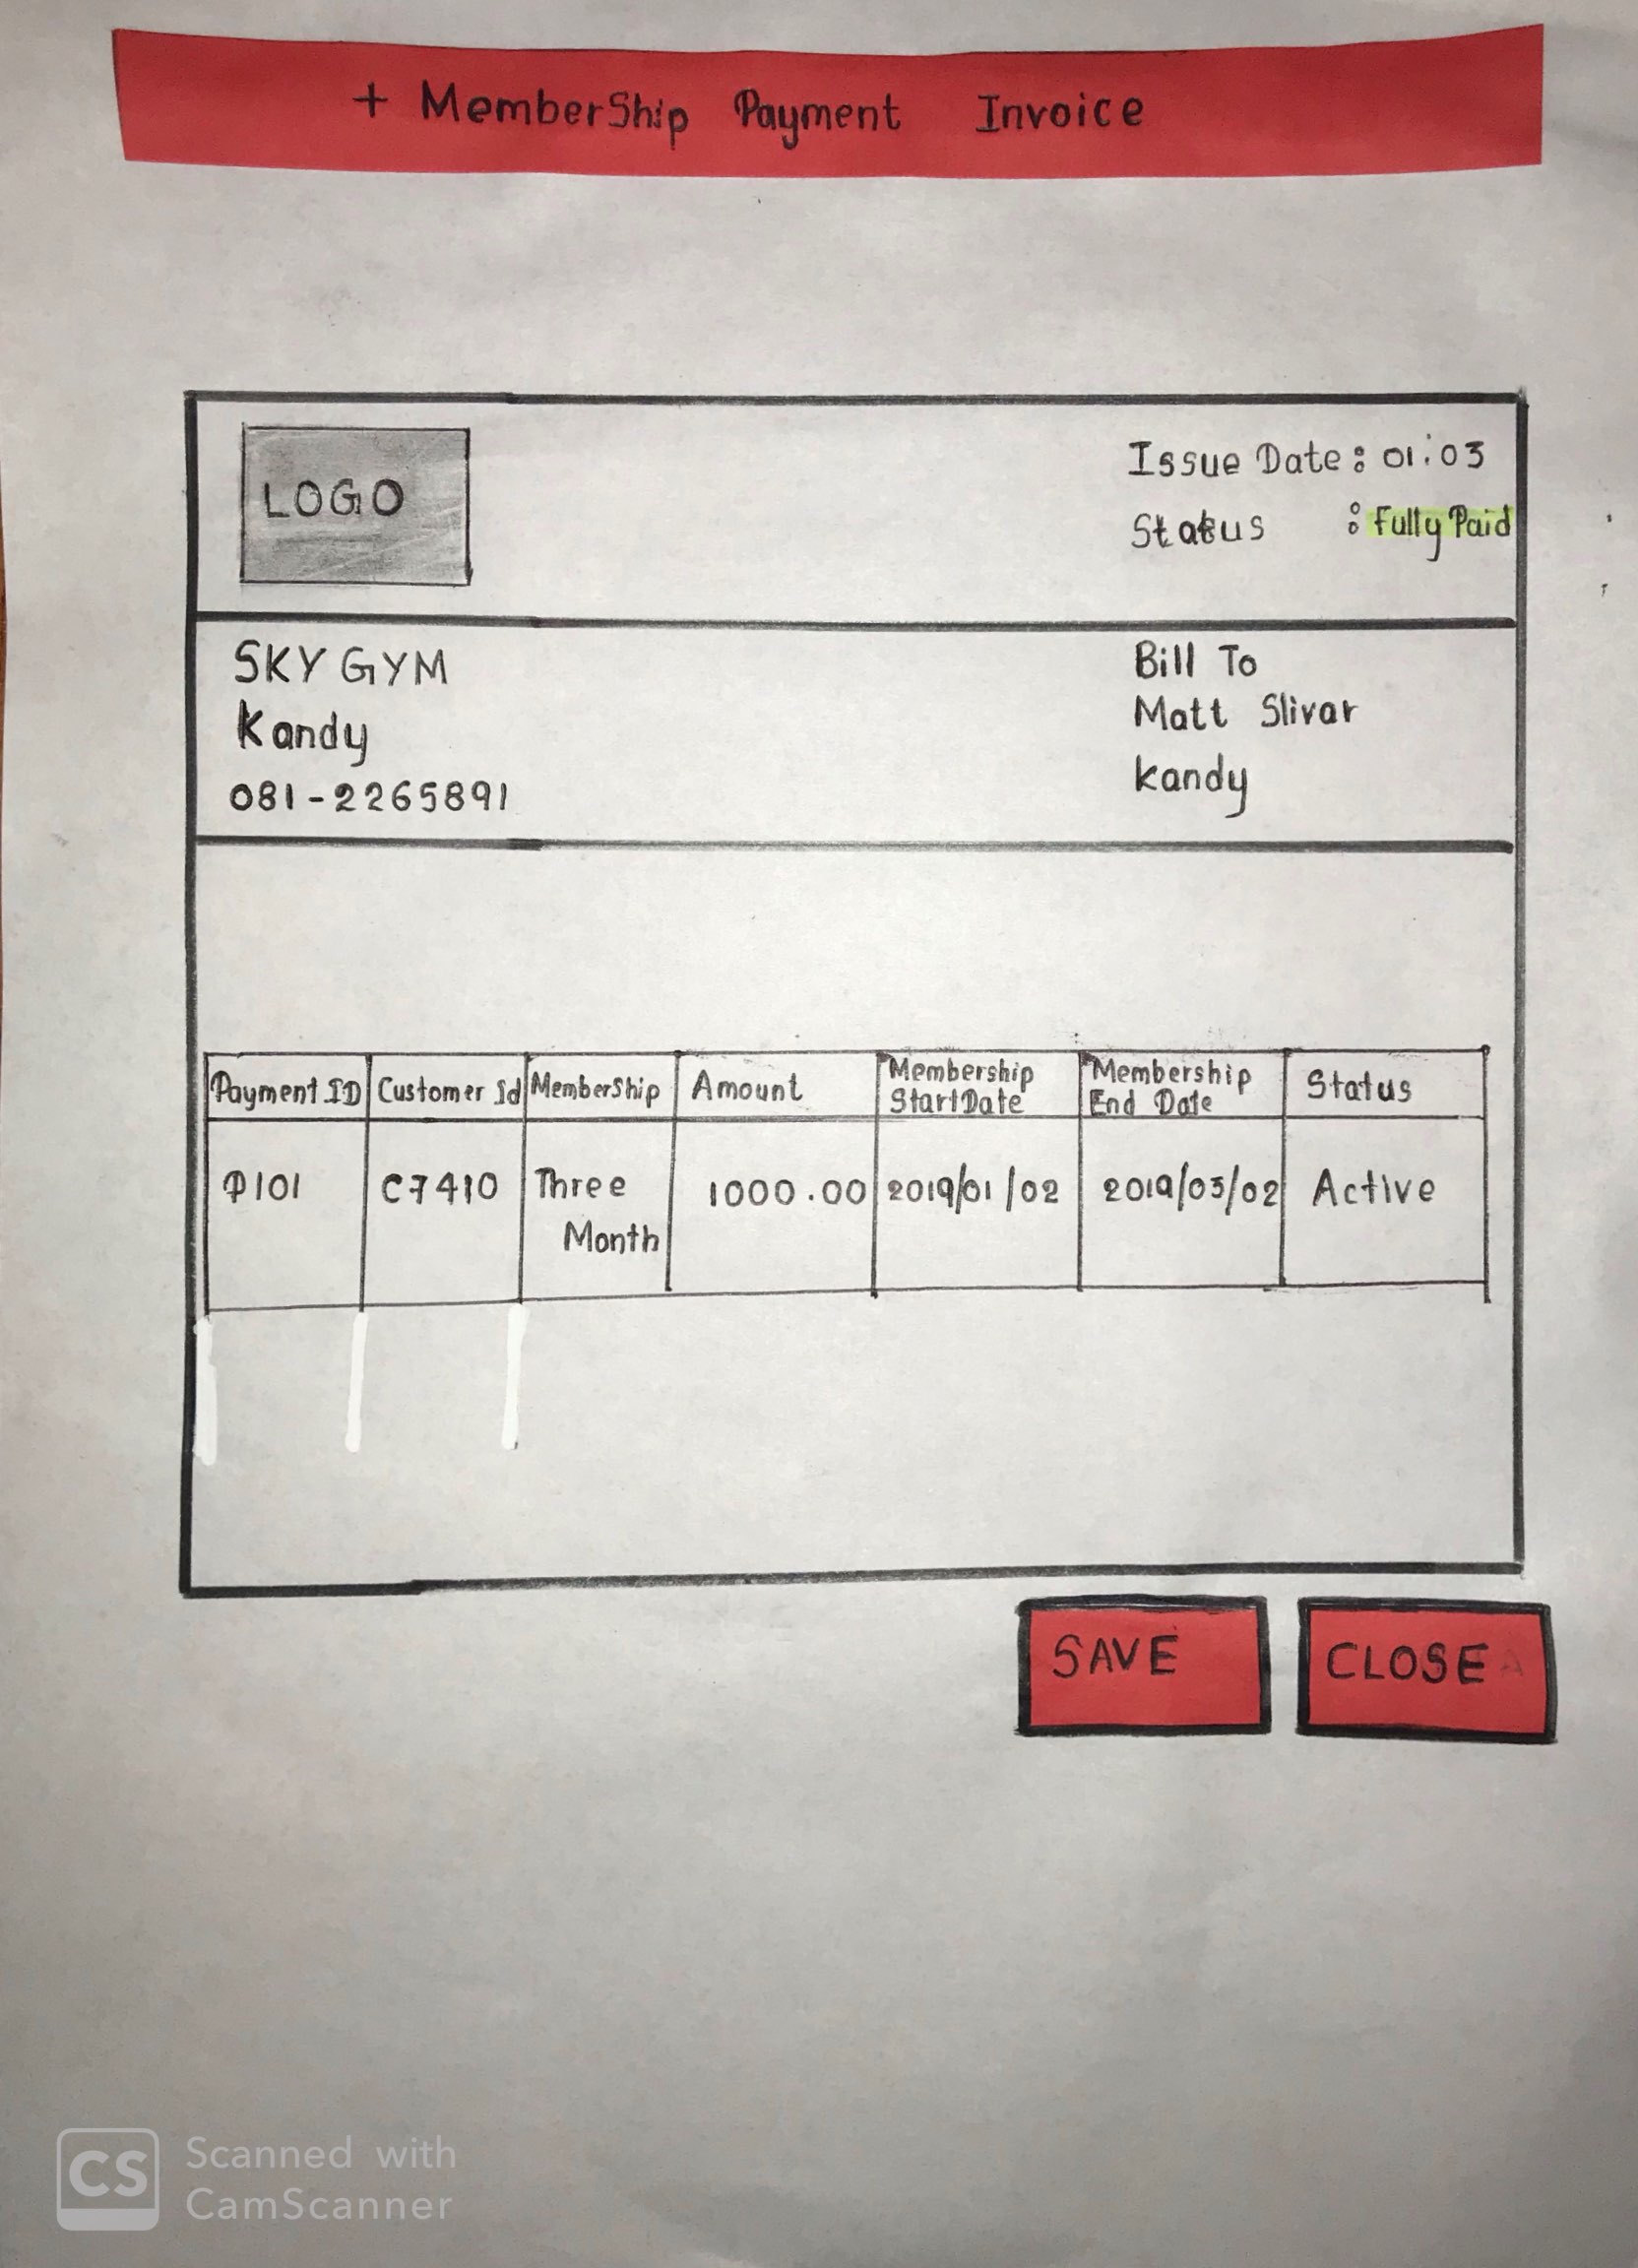 + MemberShip Payment Invoice
LOGO
Issue Date : 01:03
Status : Fully Paid
SKY GYM
Kandy
081-2265891
Bill To
Matt Slivar
kandy
Payment ID Customer Id MemberShip Amount Membership Start Date Membership End Date Status
P101 C7410 Three Month 1000.00 2019/01/02 2019/03/02 Active
SAVE CLOSE
CS Scanned with
CamScanner